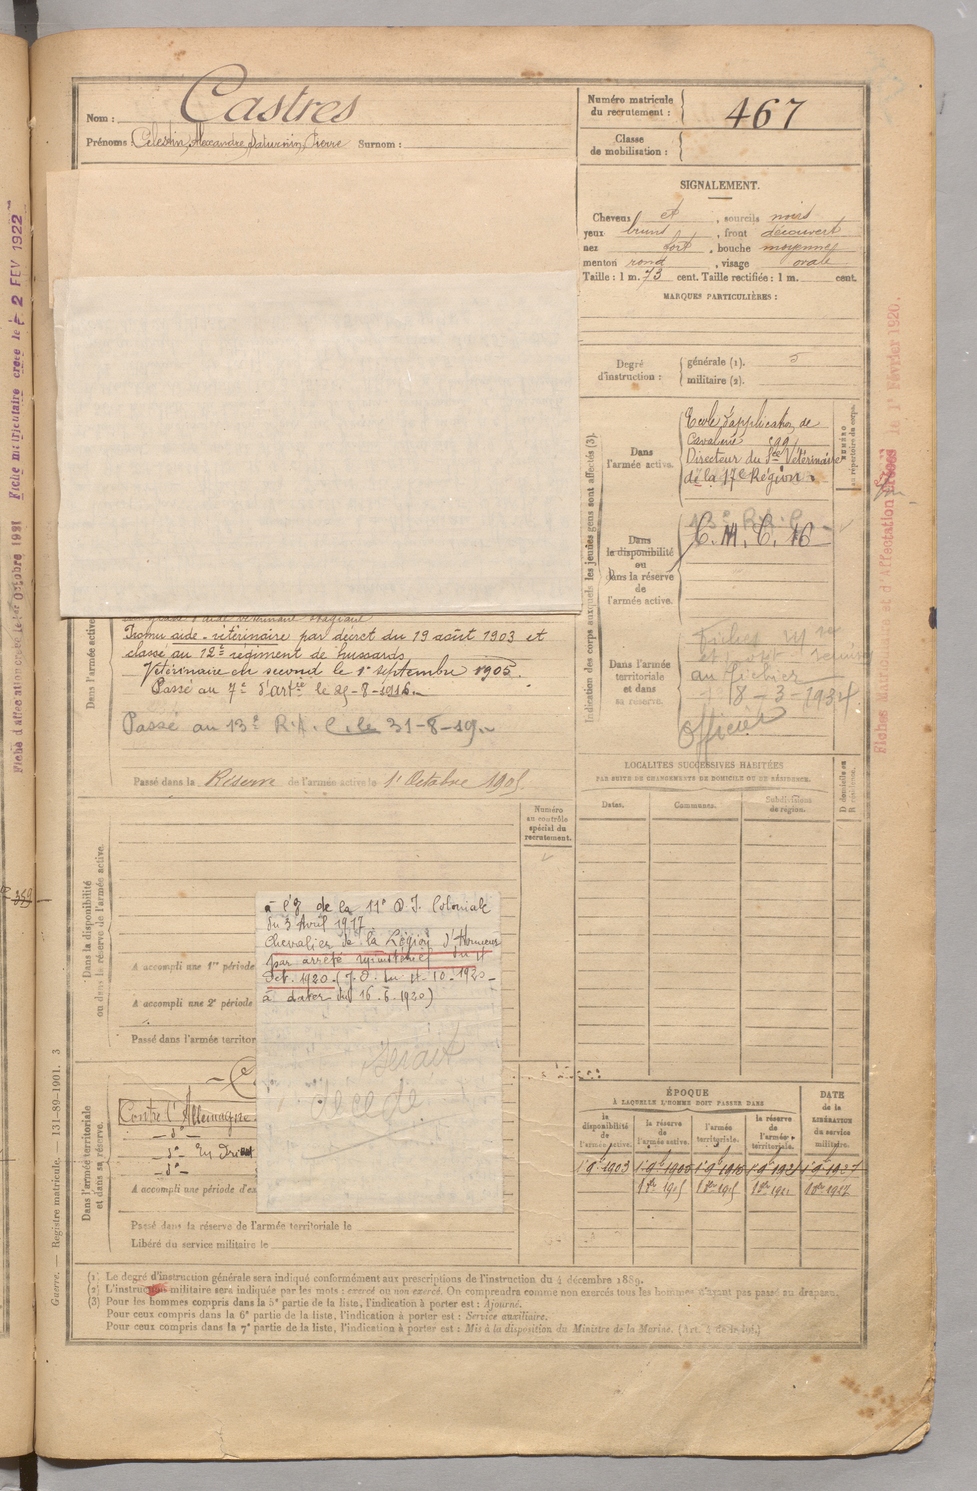 Nom : Castres
Prénoms : Célestin, Alexandre, Saturnin, Pierre Surnom :
Numéro matricule
du recrutement :
467
Classe
de mobilisation :
SIGNALEMENT.
Cheveux et , sourcils noirs
yeux bruns , front découvert
nez fort , bouche moyenne
menton rond , visage ovale
Taille : 1 m. 73 cent. Taille rectifiée : 1 m. cent.
MARQUES PARTICULIÈRES :
Degré
d'instruction :
générale (1). 5
militaire (2).
Indication des corps auxquels les jeunes gens sont affectés (3).
NUMÉRO
au répertoire du corps.
Dans
l'armée active.
Ecole d'application de
Cavalerie
Directeur du Sce Vétérinaire
de la 17e Région.
Dans
la disponibilité
ou
dans la réserve
de
l'armée active.
13e R.A.C.
C. M. C. 16
Dans l'armée
territoriale
et dans
sa réserve.
Fiches
au Fichier
18-3-1934
Officier
Dans l'armée active
Promu aide-vétérinaire par décret du 19 août 1903 et
classé au 12e régiment de hussards
Vétérinaire en second le 1er septembre 1905.
Passé au 7e d'artie le 29-8-1916.
Passé au 13e R.A.C. le 31-8-19.
Passé dans la Réserve de l'armée active le 1er Octobre 1905
LOCALITÉS SUCCESSIVES HABITÉES
PAR SUITE DE CHANGEMENTS DE DOMICILE OU DE RÉSIDENCE.
Dates.
Communes.
Subdivisions
de région.
D domicile ou
R résidence.
Numéro
au contrôle
spécial du
recrutement.
Dans la disponibilité
ou dans la réserve de l'armée active.
à l'O de la 11e D.I. Coloniale
du 3 Avril 1917
Chevalier de la Légion d'Honneur
par arrêté ministériel du 11
Oct. 1920. (J.O. du 11.10.1920
à dater du 16.6.1920)
serait
décédé
A accompli une 1re période
A accompli une 2e période
Passé dans l'armée territor
Dans l'armée territoriale
et dans sa réserve.
Contre l'Allemagne
_ d° _
_ d° _
_ d° _
A accompli une période d'ex
Passé dans la réserve de l'armée territoriale le
Libéré du service militaire le
ÉPOQUE
À LAQUELLE L'HOMME DOIT PASSER DANS
la
disponibilité
de
l'armée active.
la réserve
de
l'armée active.
l'armée
territoriale.
la réserve
de
l'armée
territoriale.
DATE
de la
LIBÉRATION
du service
militaire.
1er 9bre 1903
(1) Le degré d'instruction générale sera indiqué conformément aux prescriptions de l'instruction du 4 décembre 1889.
(2) L'instruction militaire sera indiquée par les mots : exercé ou non exercé. On comprendra comme non exercés tous les hommes n'ayant pas passé au drapeau.
(3) Pour les hommes compris dans la 5e partie de la liste, l'indication à porter est : Ajourné.
Pour ceux compris dans la 6e partie de la liste, l'indication à porter est : Service auxiliaire.
Pour ceux compris dans la 7e partie de la liste, l'indication à porter est : Mis à la disposition du Ministre de la Marine. (Art. 4 de la loi.)
Guerre. — Registre matricule. — 131-89-1901. 3
Fiche d'affectation créée le 1er Octobre 1921 Fiche matriculaire créée le - 2 FEV 1922
Fiches Matricule et d'Affectation créées le 1er Février 1920.
359